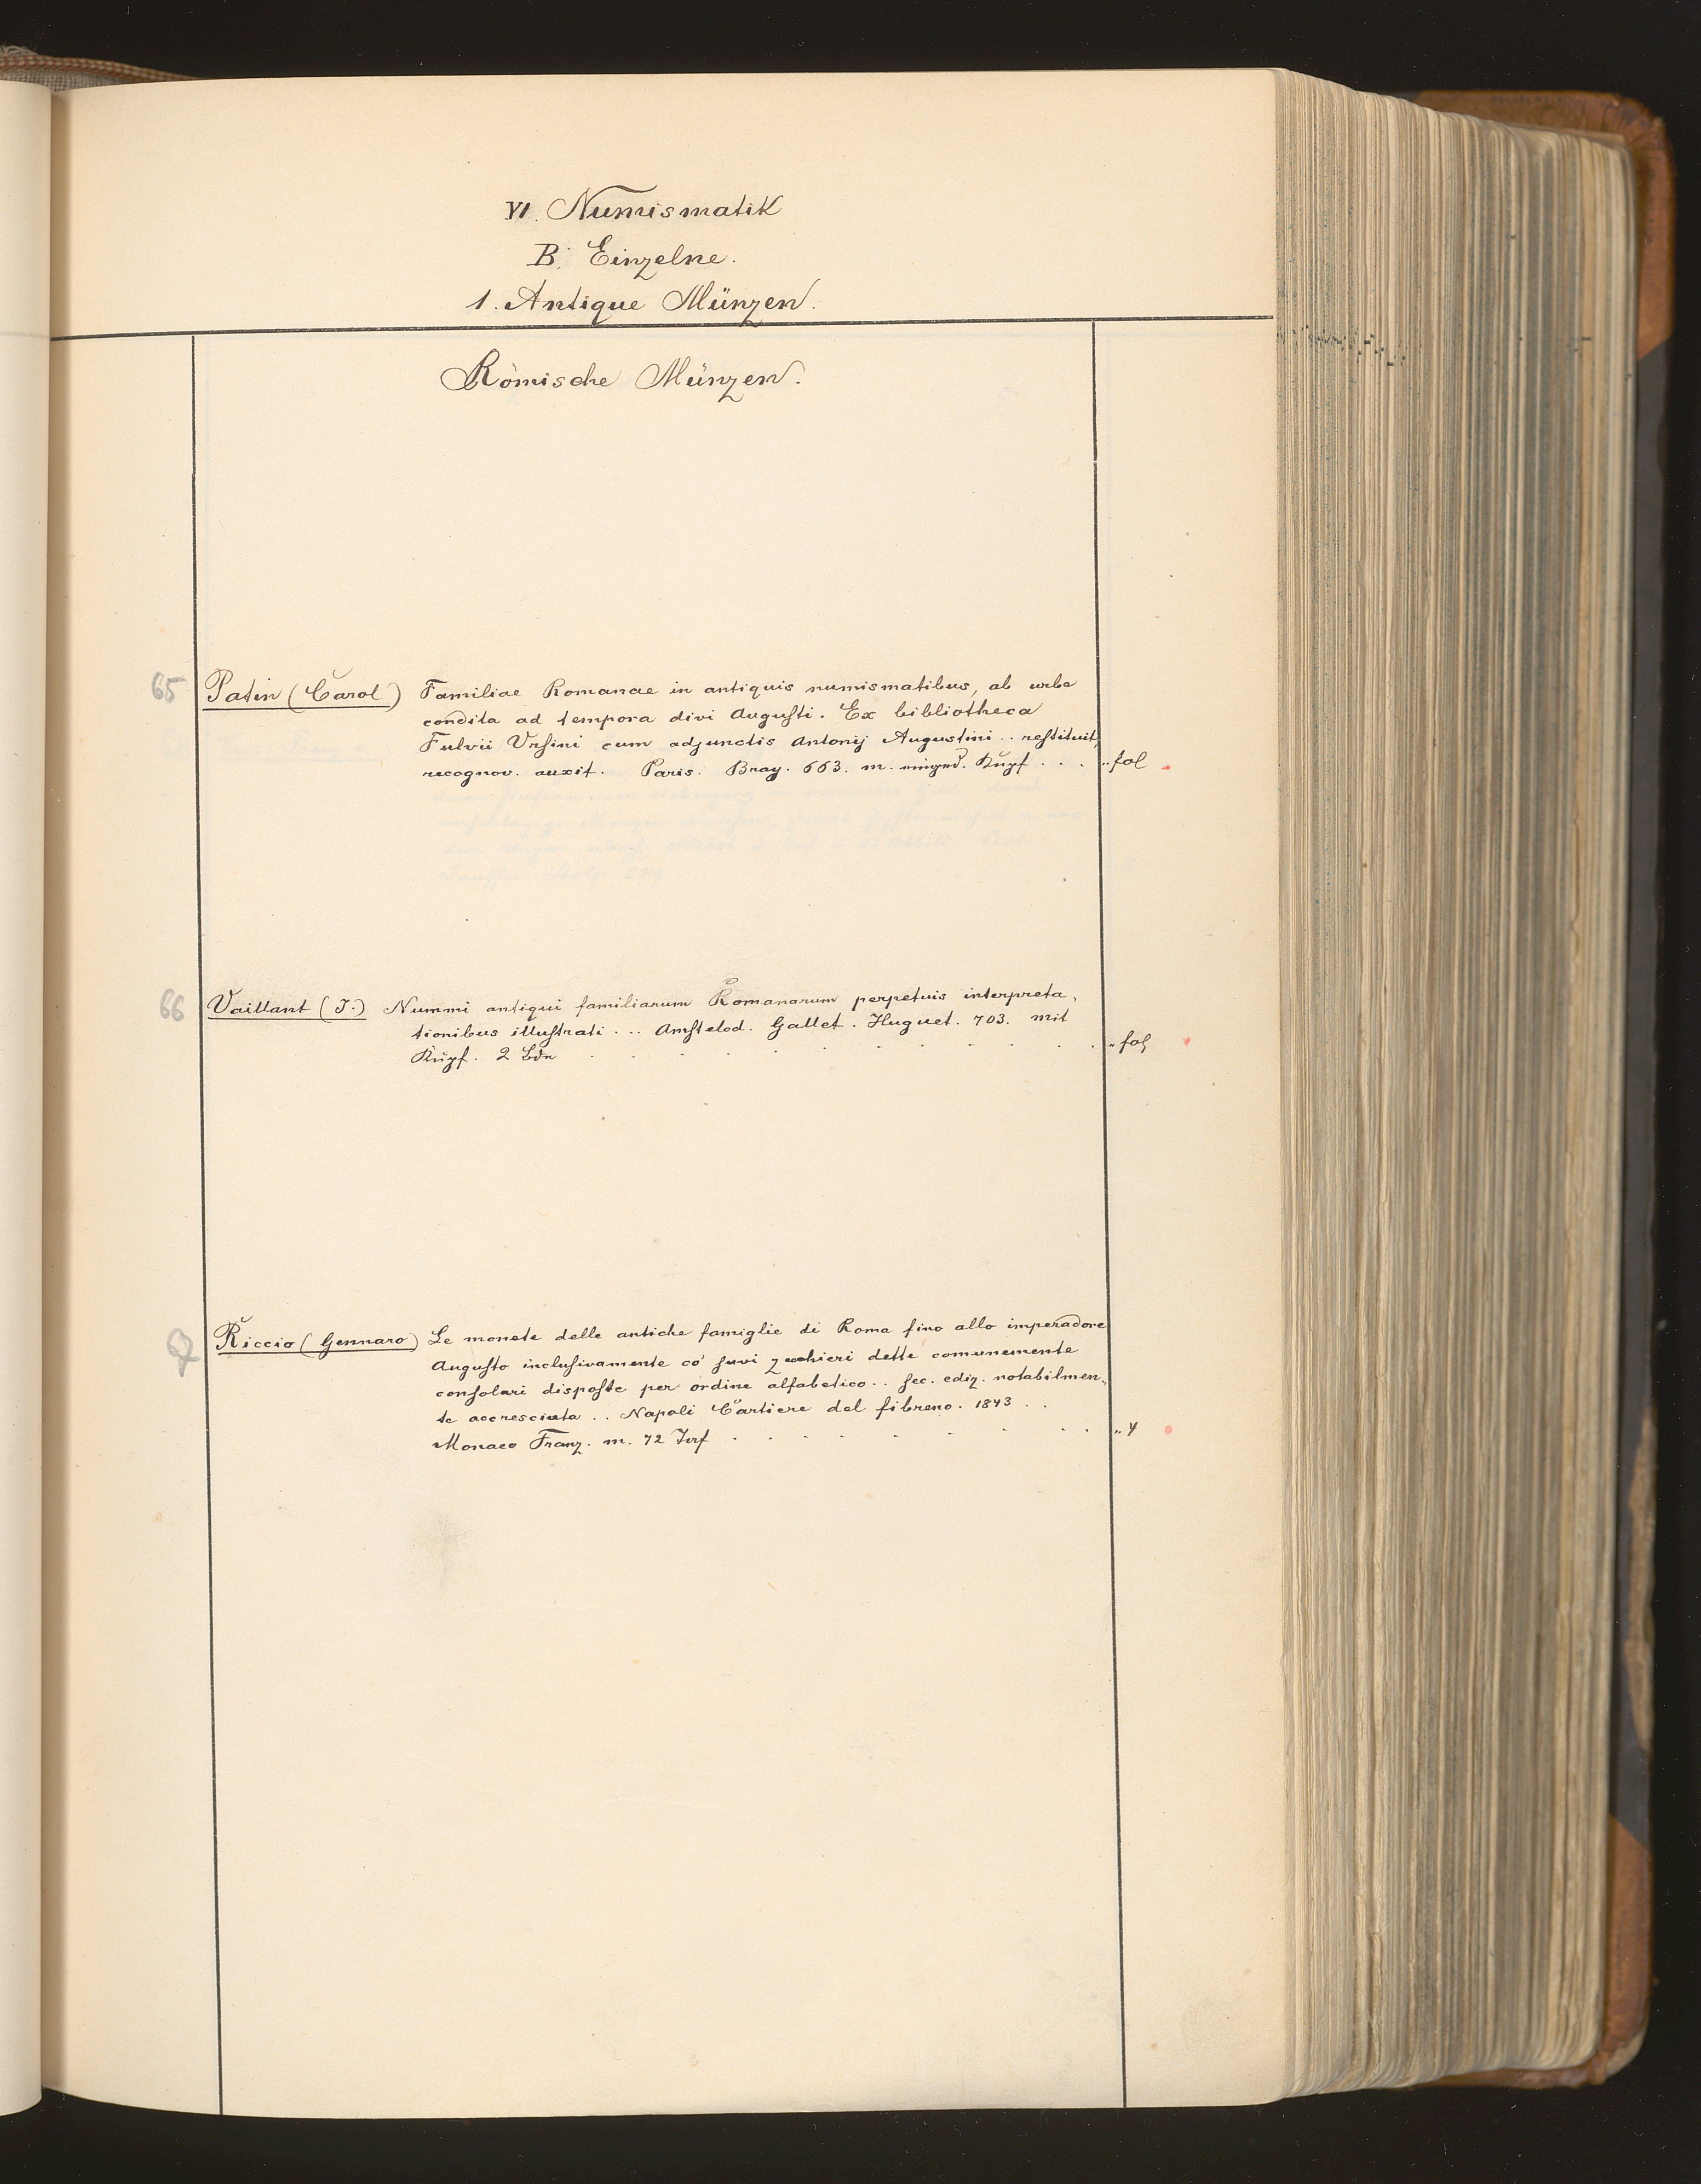 VI. Numismatik
B. Einzelne.
1. Antique Münzen.
Römische Münzen.
65 Patin (Carol) Familiae Romanae in antiquis numismatibus, ab urbe
condita ad tempora divi Augusti. Ex bibliotheca
Fulvii Ursini cum adjunctis Antonij Augustini .. restituit,
recognov. auxit. Paris. Bray. 663. m. eingedr. Kupf . . . „ fol
66 Vaillant (J.) Nummi antiqui familiarum Romanarum perpetuis interpreta„
tionibus illustrati . .. Amstelod. Gallet. Huguet. 703. mit
Kupf. 2 Bde . . . . . . . . . . . . „ fol
67 Riccio (Gennaro) Le monete delle antiche famiglie di Roma fino allo imperadore
Augusto inclusivamente co' suvi zechieri dette comunemente
consolari disposte per ordine alfabetico .. sec. ediz. notabilmen„
te accresciuta .. Napoli Cartiere del fibreno. 1843 . .
Monaco Franz. m. 72 Taf . . . . . . . . . „ 4